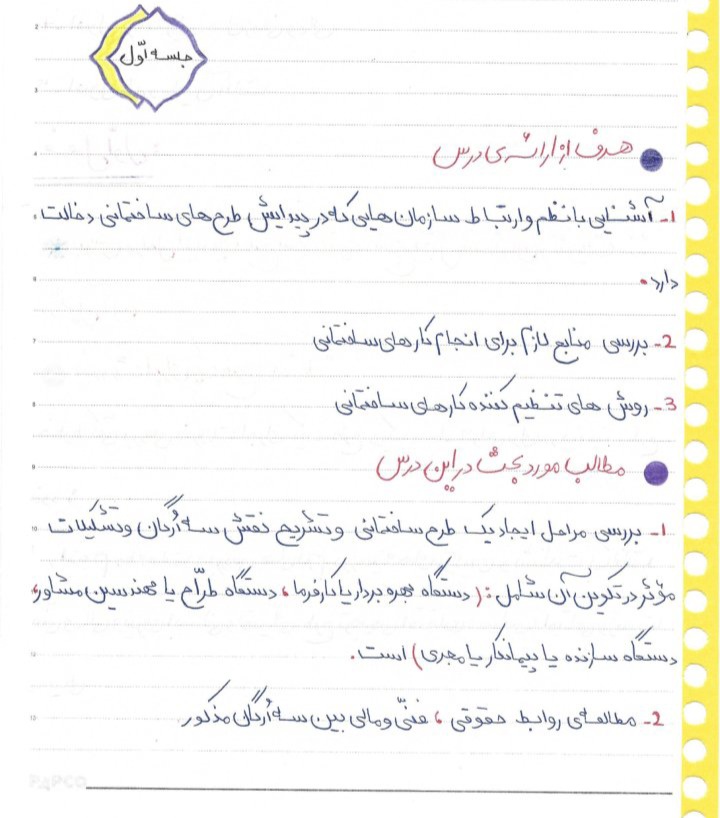 جلسه اوّل
هدف از ارائه‌ی درس
1- آشنایی با نظم و ارتباط سازمان هایی که در پیدایش طرح های ساختمانی دخالت
دارد.
2- بررسی منابع لازم برای انجام کارهای ساختمانی
3- روش های تنظیم کننده کارهای ساختمانی
مطالب مورد بحث در این درس
1- بررسی مراحل ایجاد یک طرح ساختمانی و تشریح نقش سه اُرگان و تشکیلات
مؤثر در تکوین آن شامل: (دستگاه بهره بردار یا کارفرما، دستگاه طرّاح یا مهندسین مشاور،
دستگاه سازنده یا پیمانکار یا مجری) است.
2- مطالعه‌ی روابط حقوقی، فنّی و مالی بین سه اُرگان مذکور
PAPCO